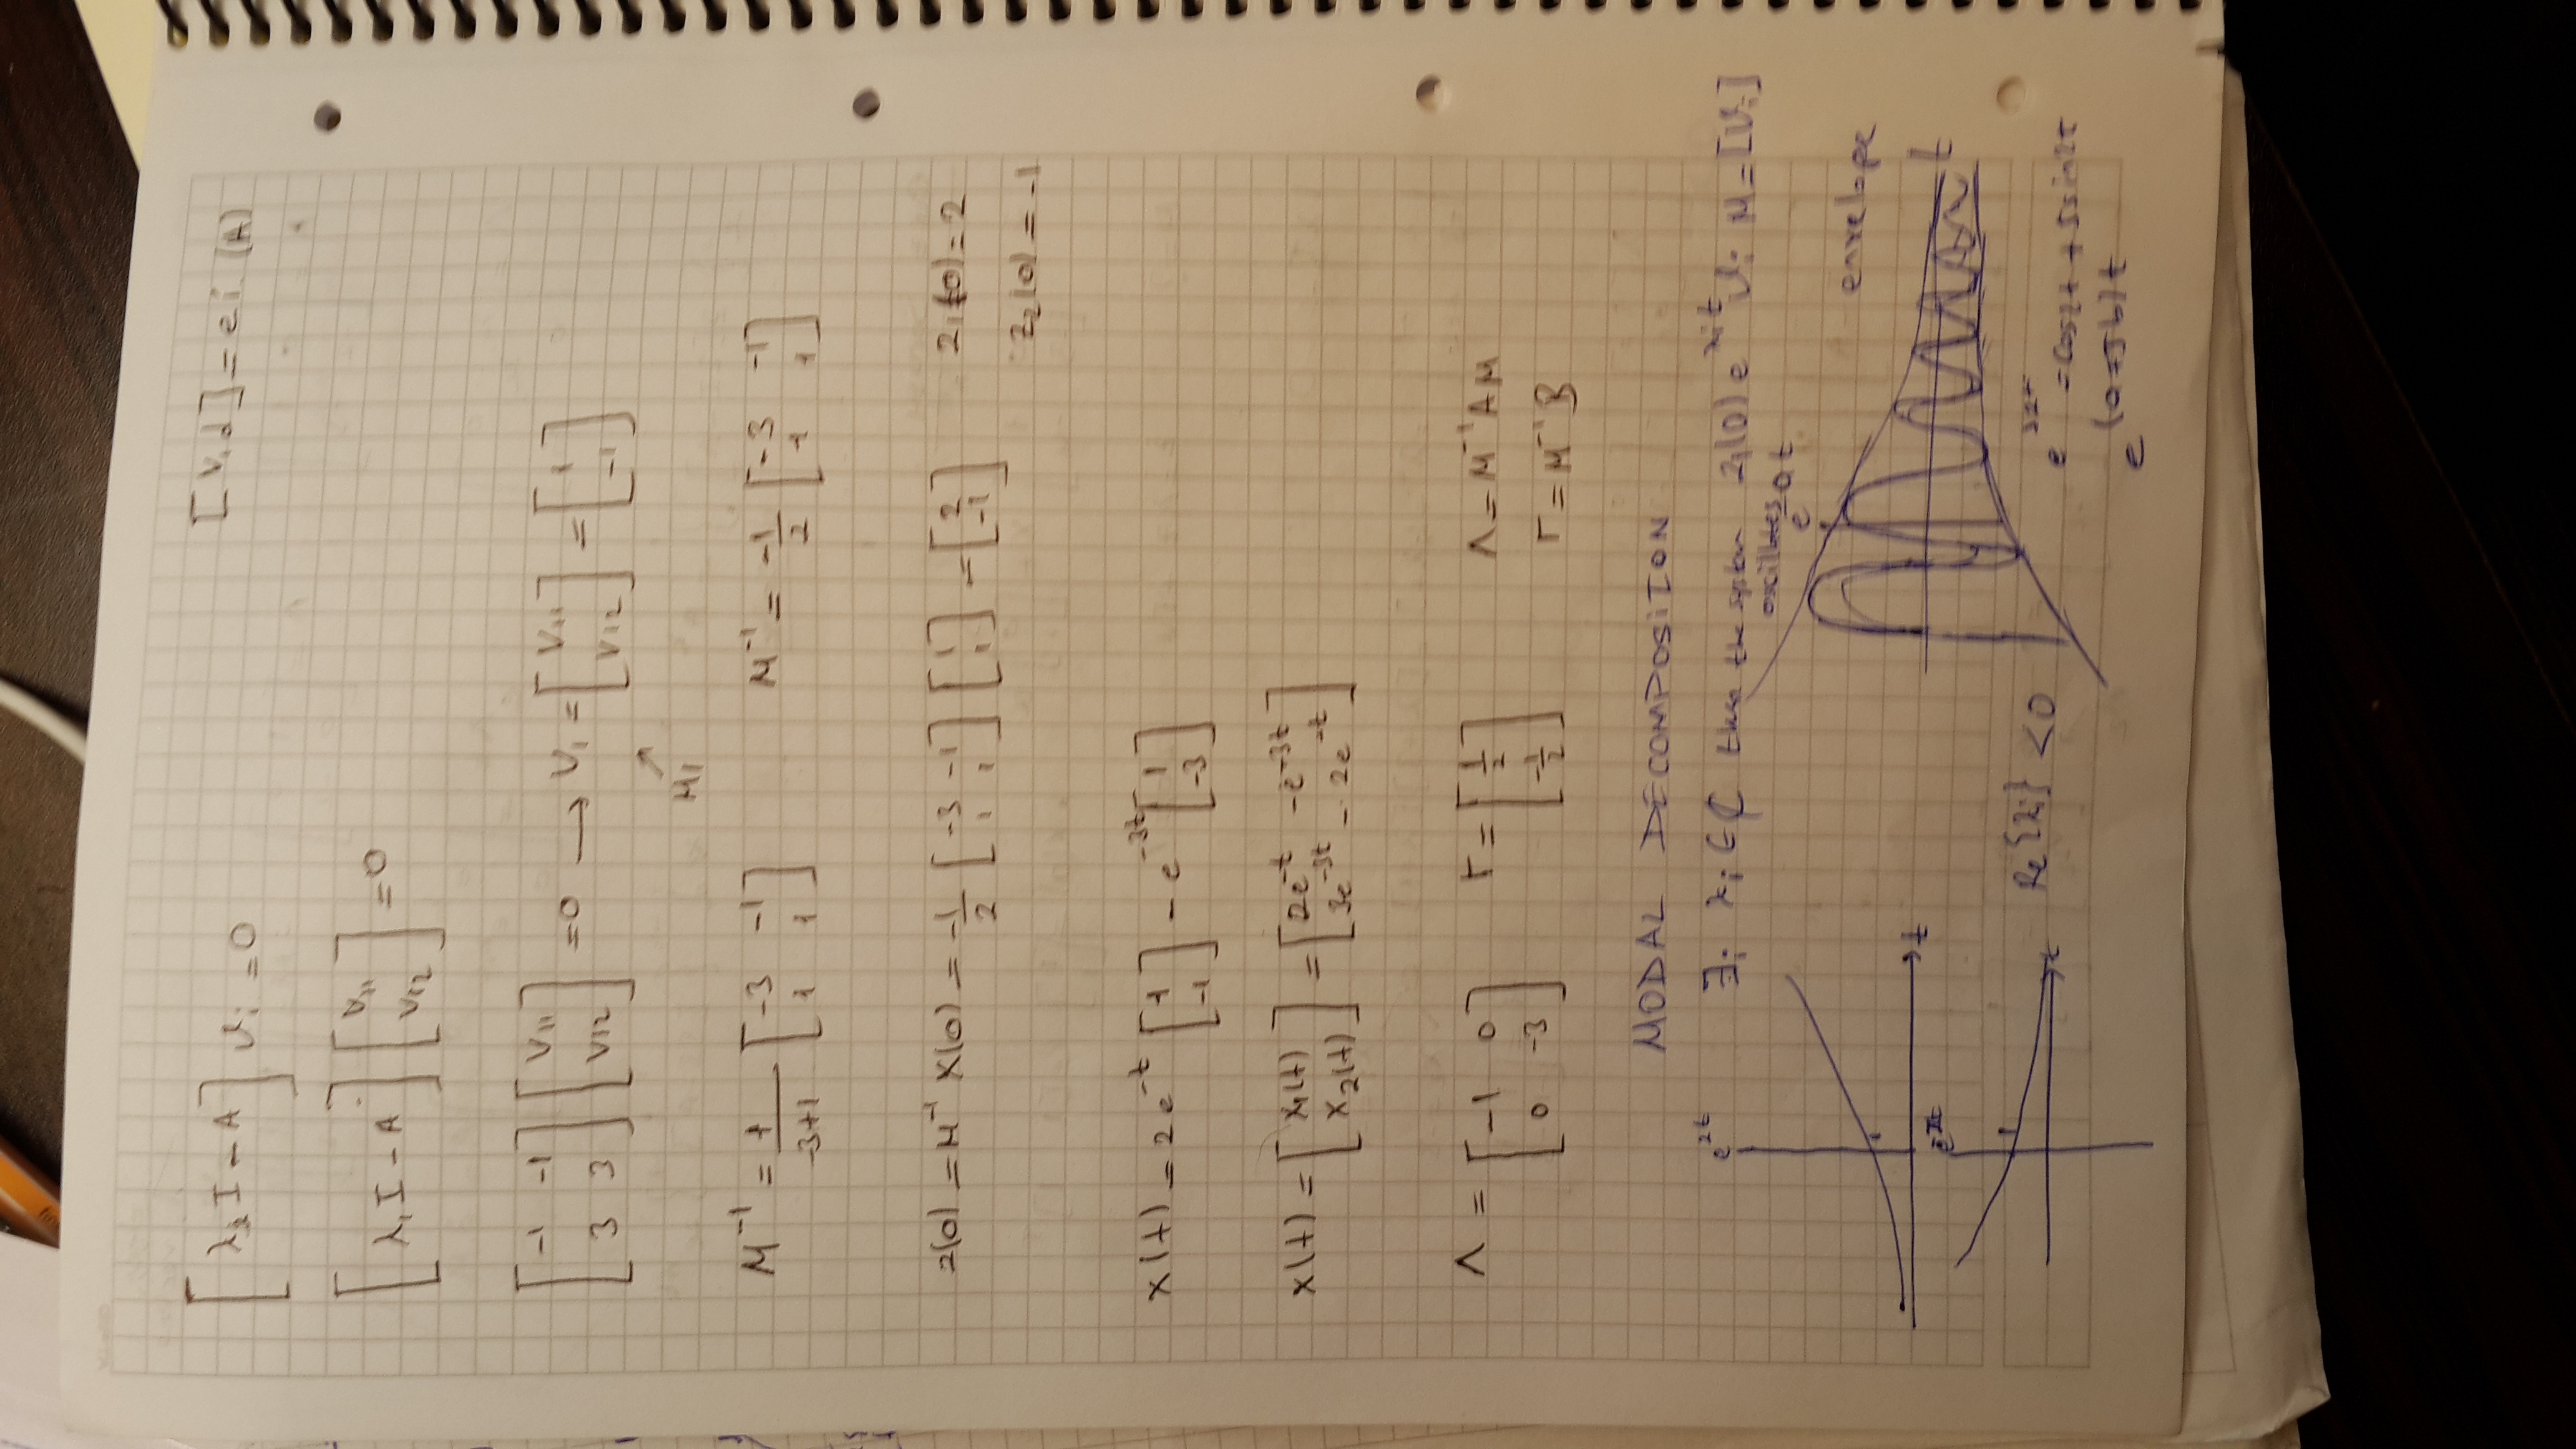 [λ₂ I - A] vᵢ = 0
[V, d] = ei (A)
[λ₁ I - A] [V₁₁ V₁₂] = 0
[-1 -1 ; 3 3] [V₁₁ ; V₁₂] = 0 → V₁ = [V₁₁ ; V₁₂] = [1 ; -1]
↗
M₁
M⁻¹ = 1/(-3+1) [-3 -1 ; 1 1]
M⁻¹ = -1/2 [-3 -1 ; 1 1]
z(0) = M⁻¹ x(0) = -1/2 [-3 -1 ; 1 1] [1 ; 1] = [2 ; -1]
z₁(0) = 2
z₂(0) = -1
x(t) = 2e^{-t} [1 ; -1] - e^{-3t} [1 ; -3]
x(t) = [x₁(t) ; x₂(t)] = [2e^{-t} - e^{-3t} ; 3e^{-3t} - 2e^{-t}]
Λ = [-1 0 ; 0 -3]
Γ = [1/2 ; -1/2]
Λ = M⁻¹AM
Γ = M⁻¹B
MODAL DECOMPOSITION
e^{2t}
∃ᵢ λᵢ ∈ ₵ then the system zᵢ(0) e^{λᵢt} vᵢ M = [vᵢ]
oscillates
e^{-at}
1
envelope
t
t
e^{-2t}
1
t
Re{λᵢ} < 0
e^{j2t} = cos2t + Jsin2t
e^{(a+Jb)t}